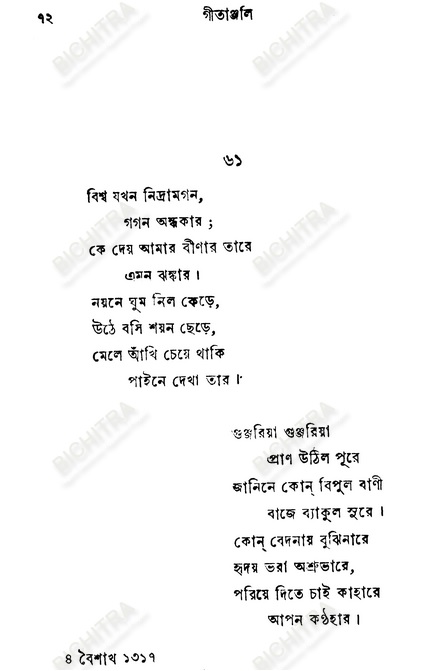 ৭২
গীতাঞ্জলি
৬১
বিশ্ব যখন নিদ্রামগন,
গগন অন্ধকার ;
কে দেয় আমার বীণার তারে
এমন ঝঙ্কার ।
নয়নে ঘুম নিল কেড়ে,
উঠে বসি শয়ন ছেড়ে,
মেলে আঁখি চেয়ে থাকি
পাইনে দেখা তার ।
গুঞ্জরিয়া গুঞ্জরিয়া
প্রাণ উঠিল পূরে
জানিনে কোন্ বিপুল বাণী
বাজে ব্যাকুল সুরে ।
কোন্ বেদনায় বুঝিনারে
হৃদয় ভরা অশ্রুভারে,
পরিয়ে দিতে চাই কাহারে
আপন কণ্ঠহার ।
৪ বৈশাখ ১৩১৭
BICHITRA
BICHITRA
BICHITRA
BICHITRA
BICHITRA
BICHITRA
BICHITRA
BICHITRA